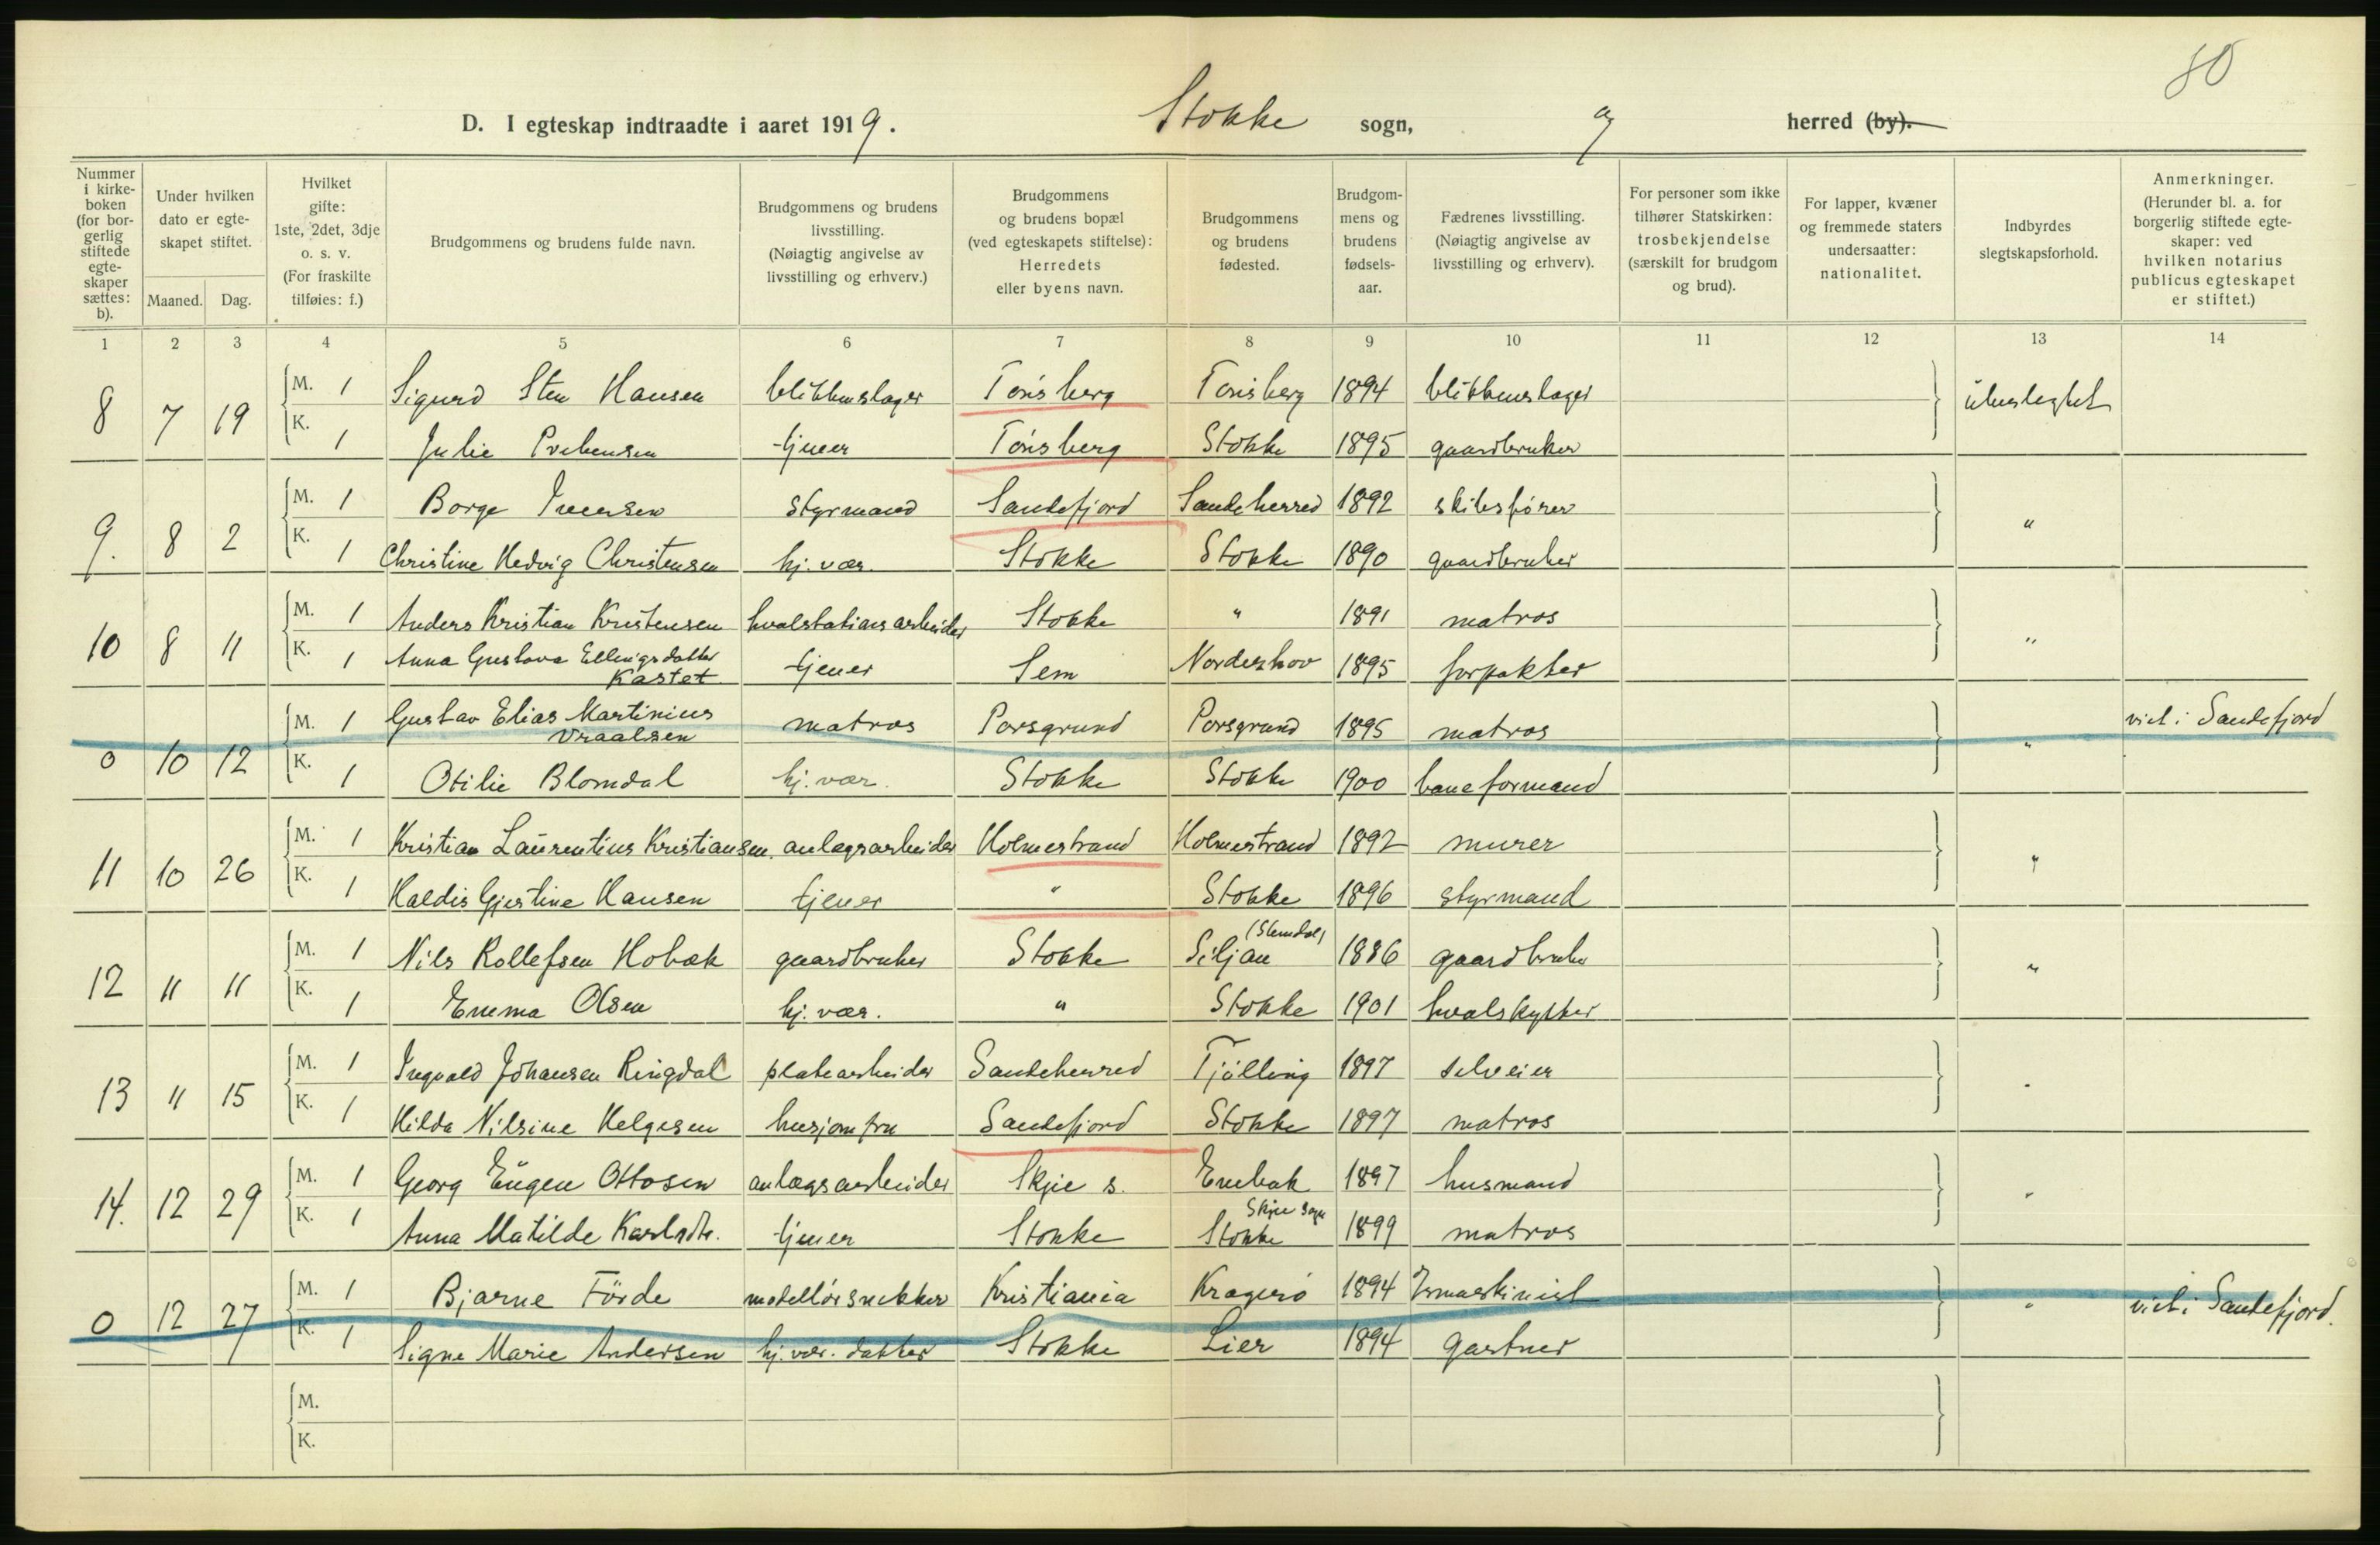 80
D. I egteskap indtraadte i aaret 1919. Stokke sogn, herred (by).
Nummer i kirke-boken (for bor-gerlig stiftede egte-skaper sættes: b).
Under hvilken dato er egte-skapet stiftet.
Maaned. Dag.
Hvilket gifte: 1ste, 2det, 3dje o. s. v. (For fraskilte tilføies: f.)
Brudgommens og brudens fulde navn.
Brudgommens og brudens livsstilling. (Nøiagtig angivelse av livsstilling og erhverv.)
Brudgommens og brudens bopæl (ved egteskapets stiftelse): Herredets eller byens navn.
Brudgommens og brudens fødested.
Brudgom-mens og brudens fødsels-aar.
Fædrenes livsstilling. (Nøiagtig angivelse av livsstilling og erhverv).
For personer som ikke tilhører Statskirken: trosbekjendelse (særskilt for brudgom og brud).
For lapper, kvæner og fremmede staters undersaatter: nationalitet.
Indbyrdes slegtskapsforhold.
Anmerkninger. (Herunder bl. a. for borgerlig stiftede egte-skaper: ved hvilken notarius publicus egteskapet er stiftet.)
1 2 3 4 5 6 7 8 9 10 11 12 13 14
8 7 19 M. 1 Sigurd Sten Hansen blikkenslager Tønsberg Tønsberg 1894 blikkenslager ubeslegtet
K. 1 Julie Prebensen tjener Tønsberg Stokke 1895 gaardbruker
9. 8 2 M. 1 Borge Iversen styrmand Sandefjord Sandeherred 1892 skibsfører "
K. 1 Christine Hedvig Christensen hj. vær. Stokke Stokke 1890 gaardbruker
10 8 11 M. 1 Anders Kristian Kristensen hvalstationsarbeider Stokke " 1891 matros "
K. 1 Anna Gustava Ellingsdatter Kastet tjener Sem Norderhov 1895 forpakter
0 10 12 M. 1 Gustav Elias Martinius Vraalsen matros Porsgrund Porsgrund 1895 matros " viet i Sandefjord
K. 1 Otilie Blomdal hj. vær. Stokke Stokke 1900 baneformand
11 10 26 M. 1 Kristian Laurentius Kristiansen. anlægsarbeider Holmestrand Holmestrand 1892 murer "
K. 1 Haldis Gjertine Hansen tjener " Stokke 1896 styrmand
12 11 11 M. 1 Nils Rollefsen Hobæk gaardbruker Stokke Siljan (Slemdal) 1886 gaardbruker "
K. 1 Emma Olsen hj. vær. " Stokke 1901 hvalskytter
13 11 15 M. 1 Ingvald Johansen Ringdal platearbeider Sandeherred Tjølling 1897 selveier "
K. 1 Hilda Nilsine Helgesen husjomfru Sandefjord Stokke 1897 matros
14. 12 29 M. 1 Georg Eugen Ottosen anlægsarbeider Skjee s. Enebak 1897 husmand "
K. 1 Anna Matilde Karlsdtr. tjener Stokke Skjee sogn Stokke 1899 matros
0 12 27 M. 1 Bjarne Förde modellørsnekker Kristiania Kragerø 1894 " viet i Sandefjord.
K. 1 Signe Marie Andersen hj. vær. datter Stokke Lier 1894 gartner
M.
K.